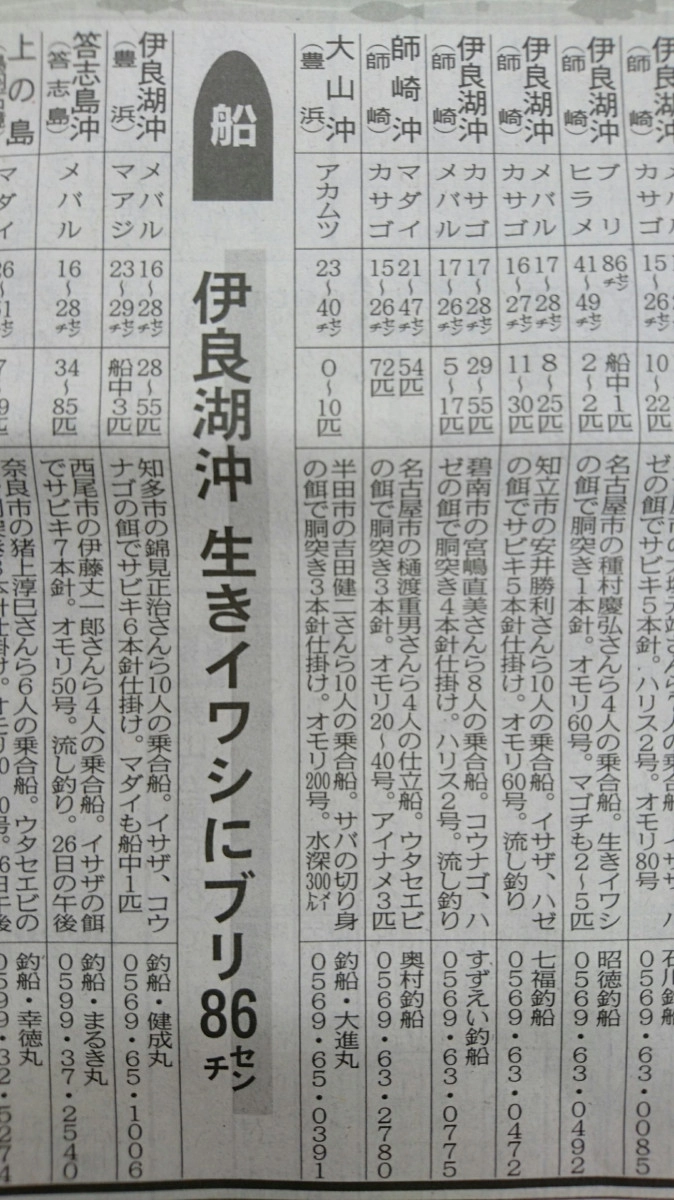 カサゴ
0569・63・0085
伊良湖沖
(師崎)
ブリ
ヒラメ
86センチ
41〜49センチ
船中1匹
2〜2匹
名古屋市の種村慶弘さんら4人の乗合船。生きイワシ
の餌で胴突き1本針。オモリ60号。マゴチも2〜5匹
昭徳釣船
0569・63・0492
伊良湖沖
(師崎)
メバル
カサゴ
17〜28センチ
16〜27センチ
8〜25匹
11〜30匹
知立市の安井勝利さんら10人の乗合船。イサザ、ハゼ
の餌でサビキ5本針。オモリ60号。流し釣り
七福釣船
0569・63・0472
伊良湖沖
(師崎)
カサゴ
メバル
17〜28センチ
17〜26センチ
29〜55匹
5〜17匹
碧南市の宮嶋直美さんら8人の乗合船。コウナゴ、ハ
ゼの餌で胴突き4本針仕掛け。ハリス2号。流し釣り
すずえい釣船
0569・63・0775
師崎沖
(師崎)
マダイ
カサゴ
21〜47センチ
15〜26センチ
54匹
72匹
名古屋市の樋渡重男さんら4人の仕立船。ウタセエビ
の餌で胴突き3本針。オモリ20〜40号。アイナメ3匹
奥村釣船
0569・63・2780
大山沖
(豊浜)
アカムツ
23〜40センチ
0〜10匹
半田市の吉田健二さんら10人の乗合船。サバの切り身
の餌で胴突き3本針仕掛け。オモリ200号。水深300メートル
釣船・大進丸
0569・65・0391
船
伊良湖沖 生きイワシにブリ86センチ
伊良湖沖
(豊浜)
メバル
マアジ
16〜28センチ
23〜29センチ
28〜55匹
船中3匹
知多市の錦見正治さんら10人の乗合船。イサザ、コウ
ナゴの餌でサビキ6本針仕掛け。マダイも船中1匹
釣船・健成丸
0569・65・1006
答志島沖
(答志島)
メバル
16〜28センチ
34〜85匹
西尾市の伊藤丈一郎さんら4人の乗合船。イサザの餌
でサビキ7本針。オモリ50号。流し釣り。26日の午後
釣船・まるき丸
0599・37・2540
上の島
マダイ
奈良市の猪上淳巳さんら6人の乗合船。ウタセエビの
釣船・幸徳丸
0599・32・5274